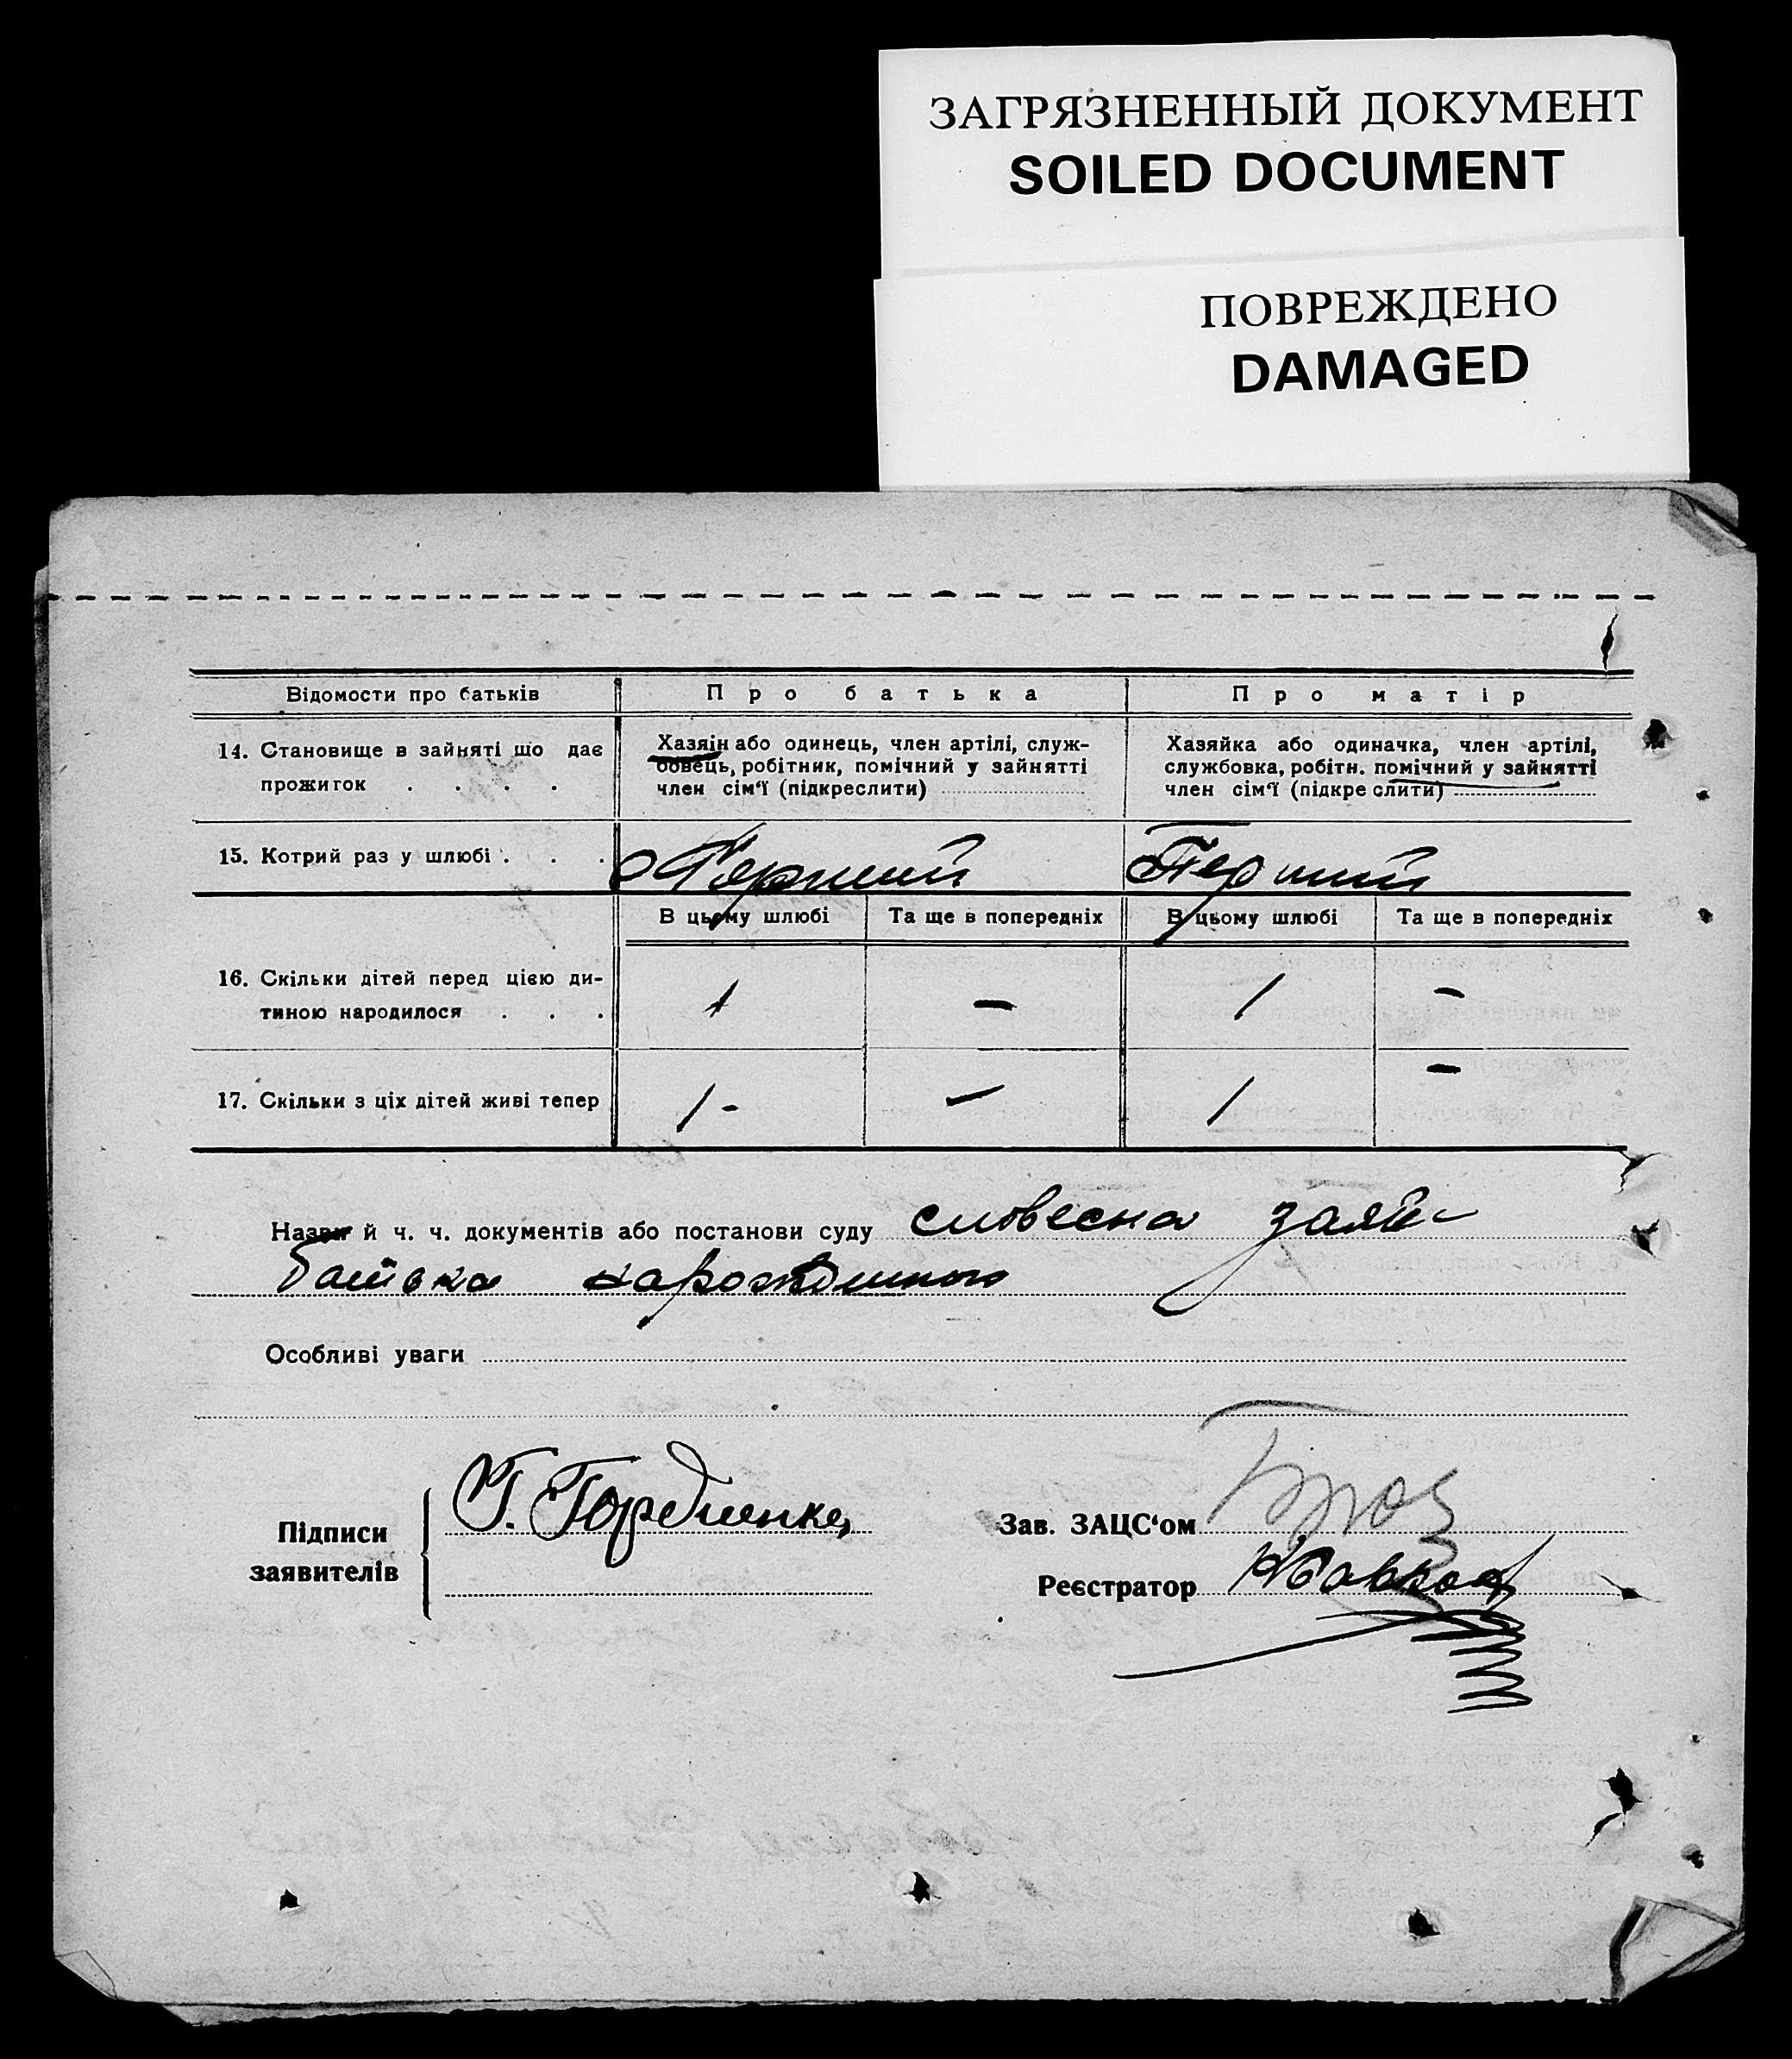 ЗАГРЯЗНЕННЫЙ ДОКУМЕНТ
SOILED DOCUMENT
ПОВРЕЖДЕНО
DAMAGED
Відомости про батьків
Про батька
Про матір
14. Становище в зайняті що дає
прожиток . . . .
Хазяїн або одинець, член артілі, служ-
бовець, робітник, помічний у зайнятті
член сім'ї (підкреслити)
Хазяйка або одиначка, член артілі,
службовка, робітн. помічний у зайнятті
член сім'ї (підкреслити)
15. Котрий раз у шлюбі . . .
Перший
Перший
В цьому шлюбі
Та ще в попередніх
В цьому шлюбі
Та ще в попередніх
16. Скільки дітей перед цією ди-
тиною народилося . . .
1
—
1
—
17. Скільки з ціх дітей живі тепер
1 -
—
1
—
Назви й ч. ч. документів або постанови суду словесна заяв-
батька
Особливі уваги
Підписи
заявителів
Г. Гордиенко
Зав. ЗАЦС'ом
Реєстратор